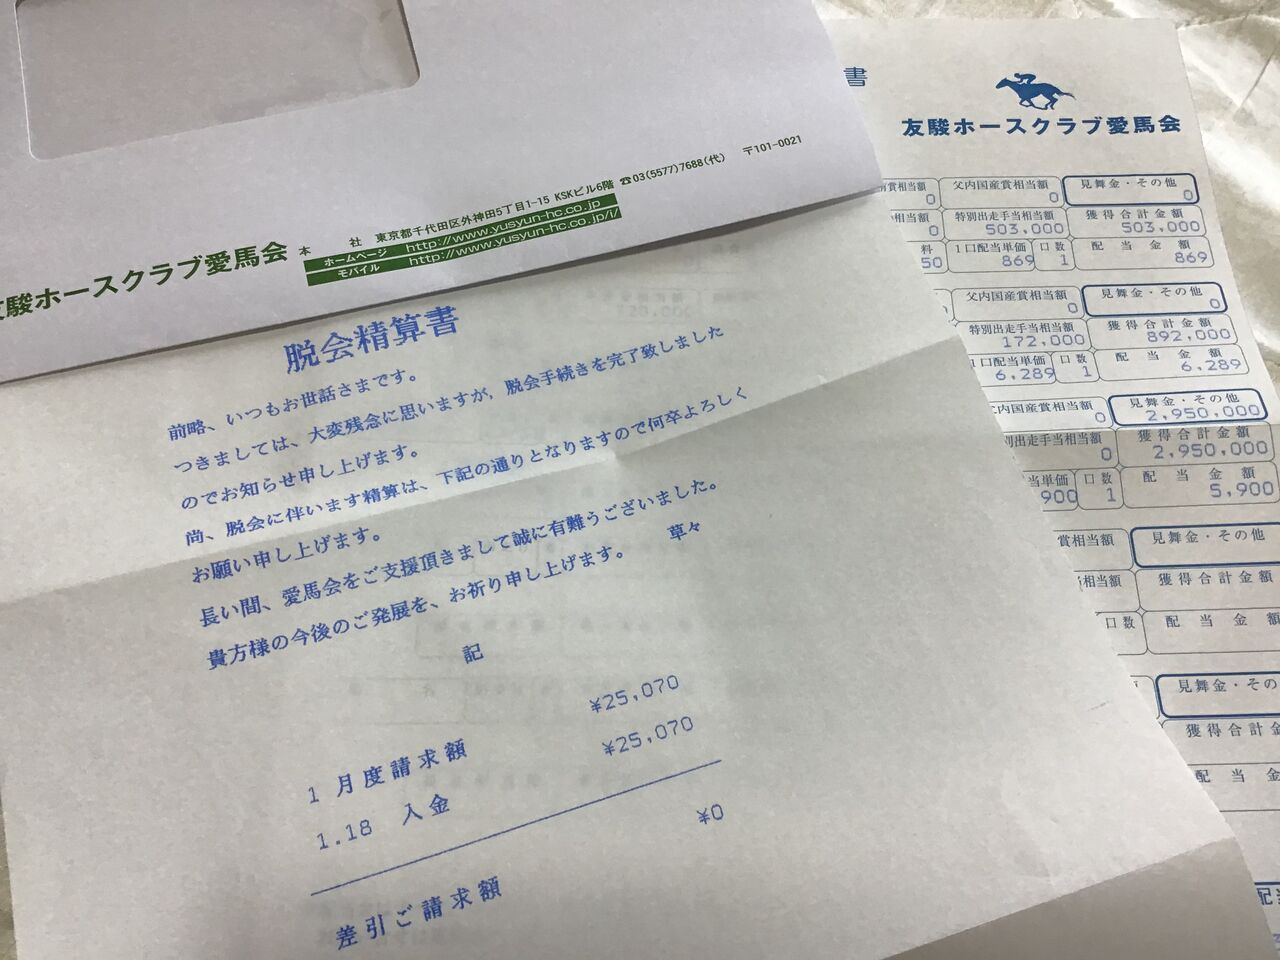 友駿ホースクラブ愛馬会
本 社 東京都千代田区外神田5丁目1-15 KSKビル6階 ☎03(5577)7688(代) 〒101-0021
ホームページ http://www.yusyun-hc.co.jp
モバイル http://www.yusyun-hc.co.jp/i/
脱会精算書
前略、いつもお世話さまです。
つきましては、大変残念に思いますが，脱会手続きを完了致しました
のでお知らせ申し上げます。
尚、脱会に伴います精算は、下記の通りとなりますので何卒よろしく
お願い申し上げます。
長い間、愛馬会をご支援頂きまして誠に有難うございました。
貴方様の今後のご発展を、お祈り申し上げます。 草々
記
1 月度請求額 ¥25,070
1.18 入金 ¥25,070
差引ご請求額 ¥0
書
友駿ホースクラブ愛馬会
賞相当額 父内国産賞相当額 見舞金・その他
0 0 0
相当額 特別出走手当相当額 獲得合計金額
0 503,000 503,000
料 1口配当単価 口数 配当金額
50 869 1 869
父内国産賞相当額 見舞金・その他
0 0
特別出走手当相当額 獲得合計金額
172,000 892,000
1口配当単価 口数 配当金額
6,289 1 6,289
父内国産賞相当額 見舞金・その他
0 2,950,000
別出走手当相当額 獲得合計金額
0 2,950,000
当単価 口数 配当金額
900 1 5,900
賞相当額 見舞金・その他
当相当額 獲得合計金額
口数 配当金額
見舞金・その他
獲得合計金
配当金
配